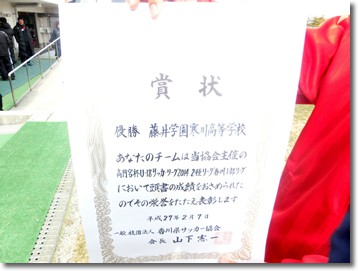 賞状
優勝 藤井学園寒川高等学校
あなたのチームは当協会主催の
高円宮杯U-18サッカーリーグ2014 2部リーグ
において頭書の成績をおさめられた
のでその栄誉をたたえ表彰します
平成27年2月7日
一般社団法人 香川県サッカー協会
会長 山下憲一